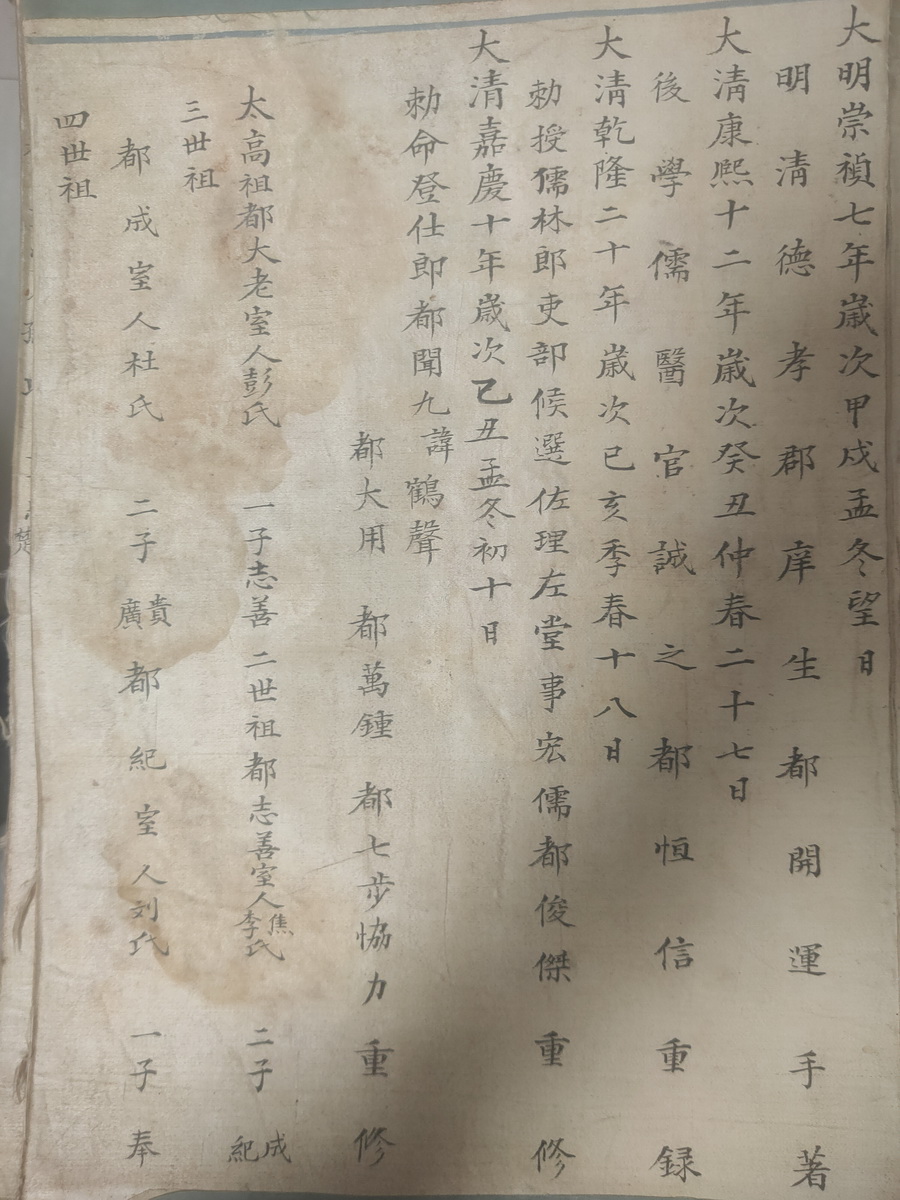 大明崇禎七年歲次甲戌孟冬望日
明清德孝郡庠生都開運手著
大清康熙十二年歲次癸丑仲春二十七日
後學儒醫官誠之都恒信重録
大清乾隆二十年歲次已亥季春十八日
勅授儒林郎吏部候選佐理左堂事宏儒都俊傑重修
大清嘉慶十年歲次已丑孟冬初十日
勅命登仕郎都聞九諱鶴聲
都大用 都萬鍾 都七步恊力重修
太高祖都大老室人彭氏 一子志善 二世祖都志善室人焦李氏 二子成紀
三世祖
都成室人杜氏 二子貴廣 都紀室人刘氏 一子奉
四世祖